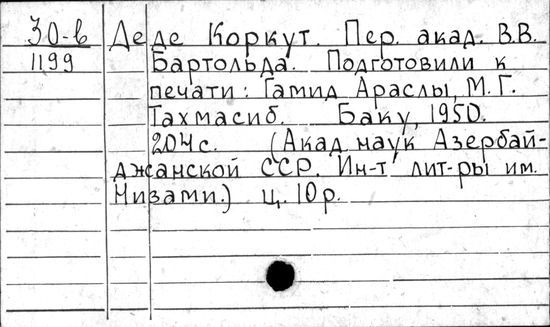 30-в Деде Коркут. Пер. акад. В.В.
1199 Бартольда. Подготовили к
печати: Гамид Араслы, М. Г.
Тахмасиб. Баку, 1950.
204 с. (Акад. наук Азербай-
джанской ССР. Ин-т лит-ры им.
Низами.) ц. 10 р.